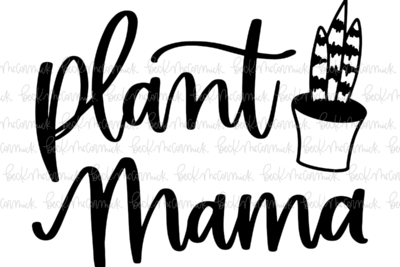 plant
Mama